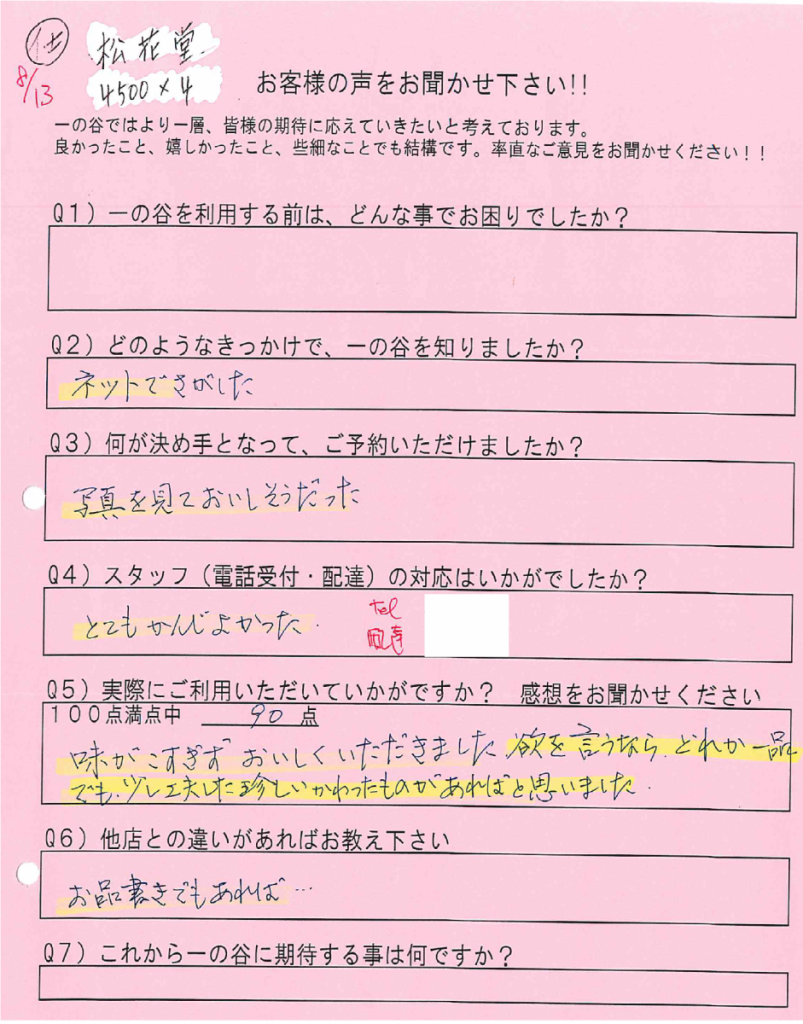 仕
松花堂
8/13
4500×4
お客様の声をお聞かせ下さい!!
一の谷ではより一層、皆様の期待に応えていきたいと考えております。
良かったこと、嬉しかったこと、些細なことでも結構です。率直なご意見をお聞かせください!!
Q1)一の谷を利用する前は、どんな事でお困りでしたか?
Q2)どのようなきっかけで、一の谷を知りましたか?
ネットでさがした
Q3)何が決め手となって、ご予約いただけましたか?
写真を見ておいしそうだった
Q4)スタッフ(電話受付・配達)の対応はいかがでしたか?
とてもかんじよかった.
tel
Q5)実際にご利用いただいていかがですか? 感想をお聞かせください
100点満点中 90点
味がこすぎず おいしくいただきました 欲を言うなら、どれか一品
でも、少し工夫した珍しいかわったものがあればと思いました.
Q6)他店との違いがあればお教え下さい
お品書きでもあれば…
Q7)これから一の谷に期待する事は何ですか?